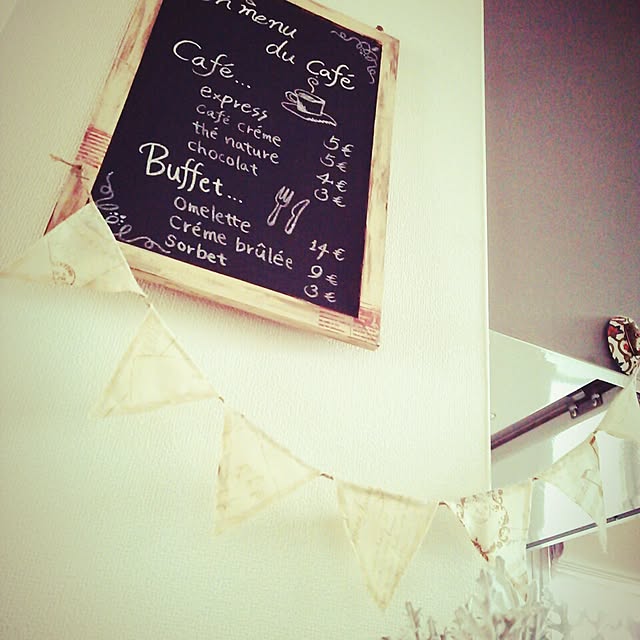 menu
du Café
Café...
express 5 €
Café créme 5 €
thé nature 4 €
chocolat 3 €
Buffet...
Omelette 14 €
Créme brûlée 9 €
Sorbet 3 €